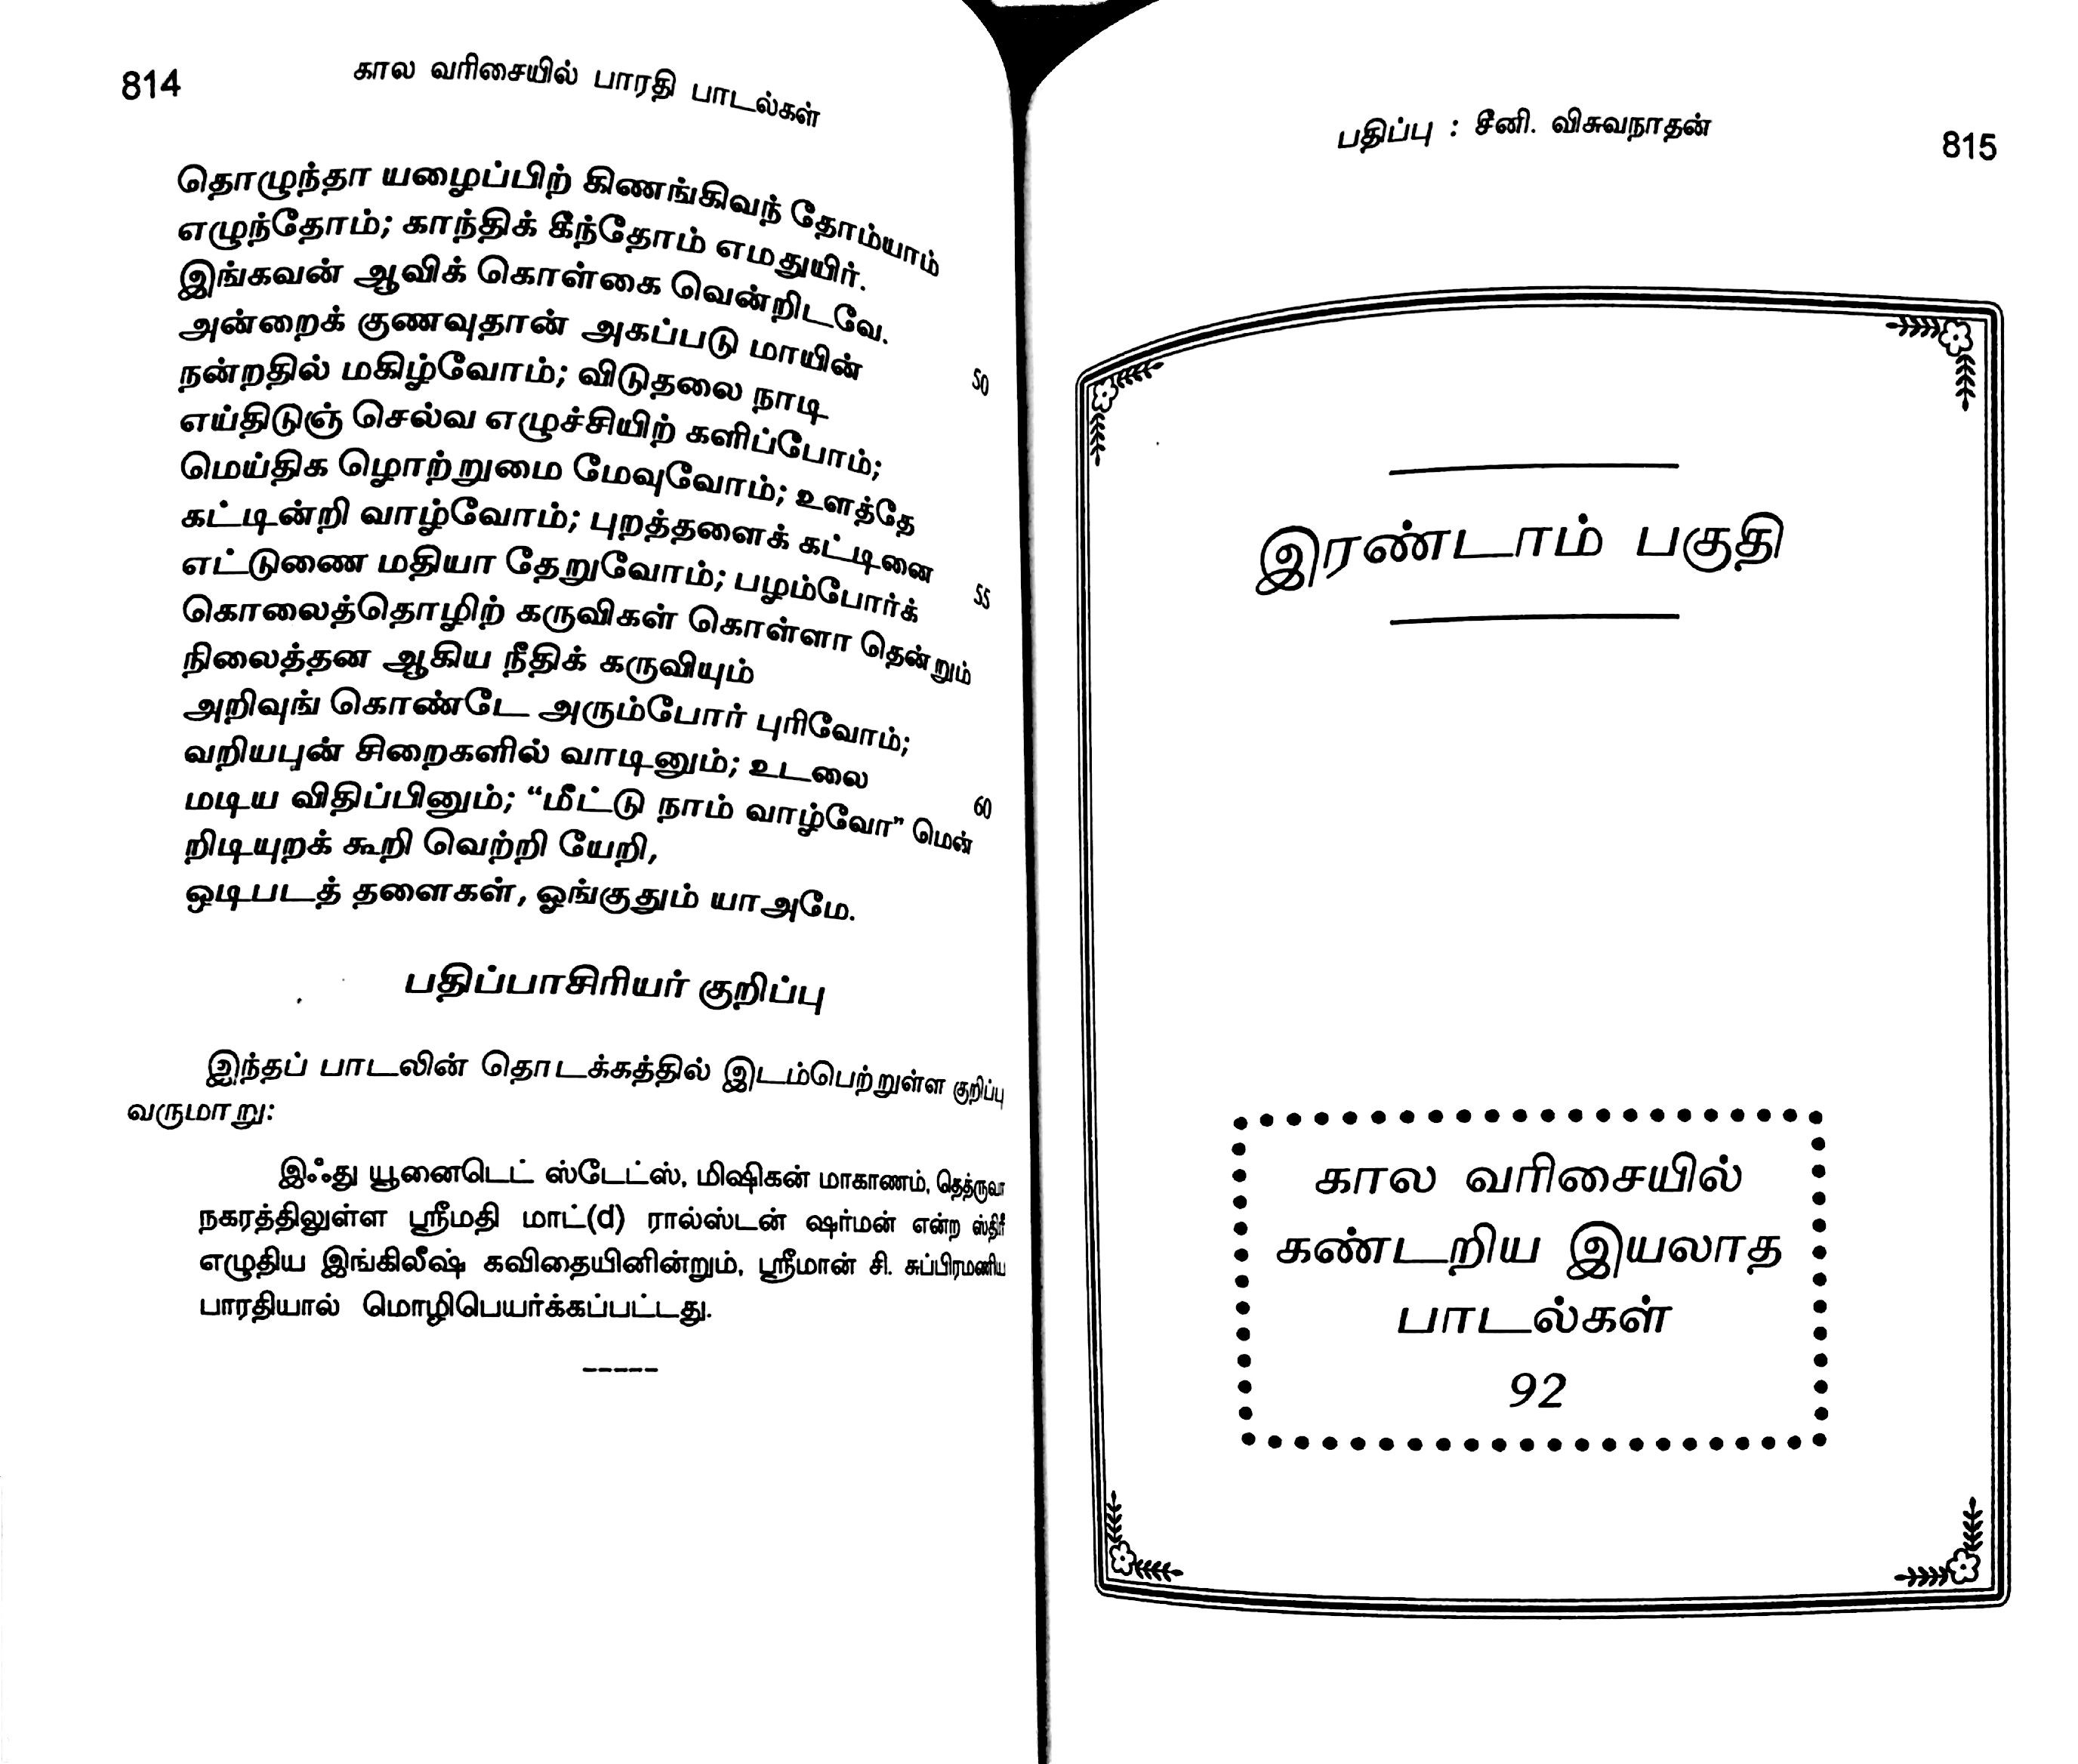 814
கால வரிசையில் பாரதி பாடல்கள்
தொழுந்தா யழைப்பிற் கிணங்கிவந் தோம்யாம்
எழுந்தோம்; காந்திக் கீந்தோம் எமதுயிர்.
இங்கவன் ஆவிக் கொள்கை வென்றிடவே.
அன்றைக் குணவுதான் அகப்படு மாயின்
நன்றதில் மகிழ்வோம்; விடுதலை நாடி 50
எய்திடுஞ் செல்வ எழுச்சியிற் களிப்போம்;
மெய்திக ழொற்றுமை மேவுவோம்; உளத்தே
கட்டின்றி வாழ்வோம்; புறத்தளைக் கட்டினை
எட்டுணை மதியா தேறுவோம்; பழம்போர்க் 55
கொலைத்தொழிற் கருவிகள் கொள்ளா தென்றும்
நிலைத்தன ஆகிய நீதிக் கருவியும்
அறிவுங் கொண்டே அரும்போர் புரிவோம்;
வறியபுன் சிறைகளில் வாடினும்; உடலை
மடிய விதிப்பினும்; “மீட்டு நாம் வாழ்வோ” மென் 60
றிடியுறக் கூறி வெற்றி யேறி,
ஒடிபடத் தளைகள், ஓங்குதும் யாஅமே.
பதிப்பாசிரியர் குறிப்பு
இந்தப் பாடலின் தொடக்கத்தில் இடம்பெற்றுள்ள குறிப்பு
வருமாறு:
இஃது யூனைடெட் ஸ்டேட்ஸ், மிஷிகன் மாகாணம், தெத்ருவா
நகரத்திலுள்ள ஸ்ரீமதி மாட்(d) ரால்ஸ்டன் ஷர்மன் என்ற ஸ்திரீ
எழுதிய இங்கிலீஷ் கவிதையினின்றும், ஸ்ரீமான் சி. சுப்பிரமணிய
பாரதியால் மொழிபெயர்க்கப்பட்டது.
-----
பதிப்பு : சீனி. விசுவநாதன்
815
இரண்டாம் பகுதி
கால வரிசையில்
கண்டறிய இயலாத
பாடல்கள்
92